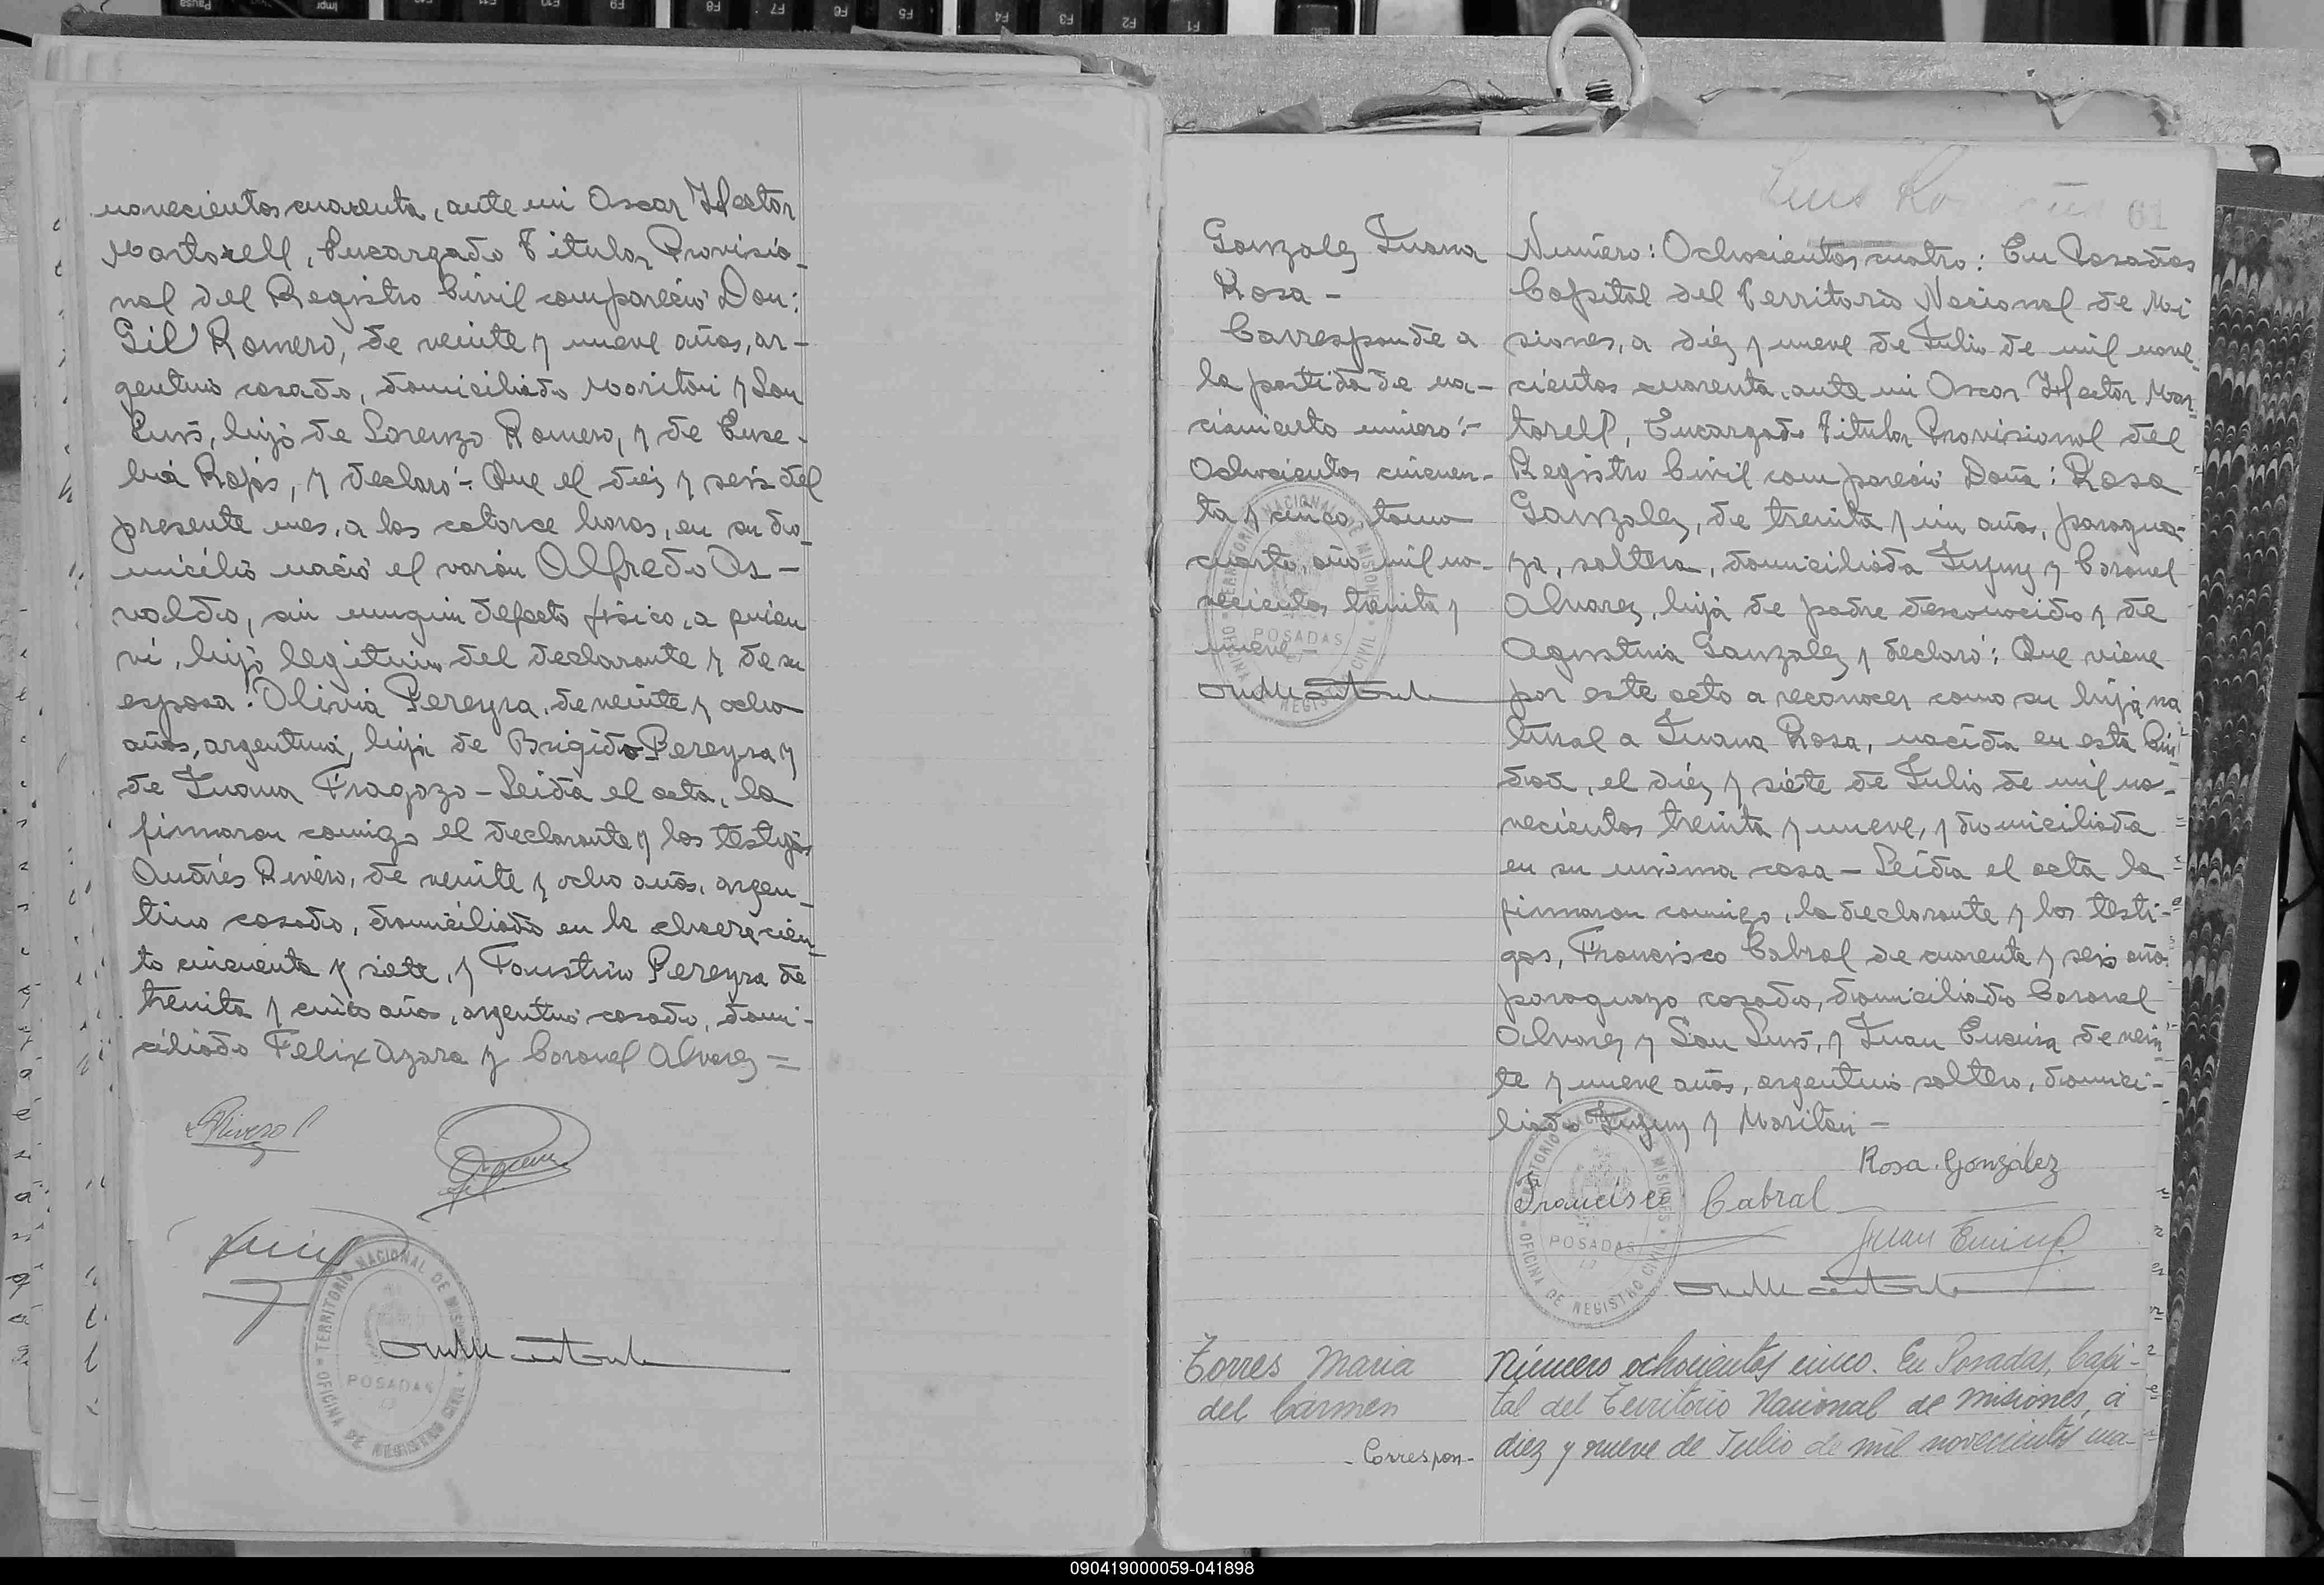 novecientos cuarenta, ante mi Oscar Hector
Martorell, Encargado Titular Provisio-
nal del Registro Civil compareció Don:
Gil Romero, de veinte y nueve años, ar-
gentino casado, domiciliado Maritori y San
Luis, hijo de Lorenzo Romero, y de Euse-
bia Rojas, y declaró: Que el diez y seis del
presente mes, a las catorce horas, en su do-
micilio nació el varón Alfredo Os-
valdo, sin ningún defecto fisico, a quien
ví, hijo legitimo del declarante y de su
esposa: Olivia Pereyra, de veinte y ocho
años, argentina, hija de Brigido Pereyra y
de Juana Fragozo - Leida el acta, la
firmaron comigo el declarante y los testigos
Andrés Rivero, de veinte y ocho años, argen-
tino casado, domiciliado en la chacra cien-
to cincuenta y siete, y Faustino Pereyra de
treinta y cinco años, argentino casado, domi-
ciliado Felix Azara y Coronel Alvarez =
ARivero
TERRITORIO NACIONAL DE MISIONES
POSADAS
OFICINA DE REGISTRO CIVIL
61
Gonzalez Juana
Rosa -
Corresponde a
la partida de na-
cimiento número:-
Ochocientos cincuen-
ta y cinco, tomo
cuarto, año mil no-
vecientos treinta y
nueve -
TERRITORIO NACIONAL DE MISIONES
POSADAS
OFICINA DE REGISTRO CIVIL
Número: Ochocientos cuatro: En Posadas
Capital del Territorio Nacional de Mi
siones, a diéz y nueve de Julio de mil nove-
cientos cuarenta, ante mi Oscar Hector Mar-
torell, Encargado Titular Provisional del
Registro Civil compareció Doña: Rosa
Gonzalez, de treinta y un años, paragua-
ya, soltera, domiciliada Jujuy y Coronel
Alvarez, hija de padre desconocido y de
Agustina Gonzalez y declaró: Que viene
por este acto a reconocer como su hija na
tural a Juana Rosa, nacida en esta Ciu-
dad, el diéz y siéte de Julio de mil no-
vecientos treinta y nueve, y domiciliada
en su misma casa - Leida el acta la
firmaron comigo, la declarante y los testi-
gos, Francisco Cabral de cuarenta y seis años
paraguayo casado, domiciliado Coronel
Alvarez y San Luis, y Juan Encina de vein-
te y nueve años, argentino soltero, domici-
liado Jujuy y Maritori -
Rosa Gonzalez
Francisco Cabral
TERRITORIO NACIONAL DE MISIONES
POSADAS
OFICINA DE REGISTRO CIVIL
Torres Maria
del Carmen
- Correspon-
Número ochocientos cinco. En Posadas, Capi-
tal del Territorio Nacional de Misiones, á
diez y nueve de Julio de mil novecientos cua-
090419000059-041898